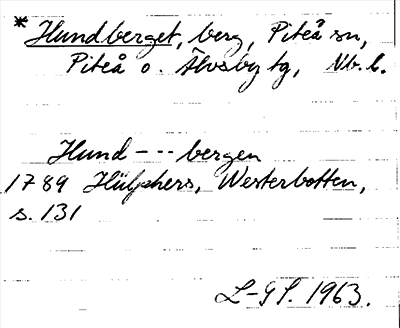 * Hundberget, berg, Piteå sn,
Piteå o. Älvsby tg, Nb. l.
Hund --- bergen
1789 Hülphers, Westerbotten,
s. 131
L-GS. 1963.